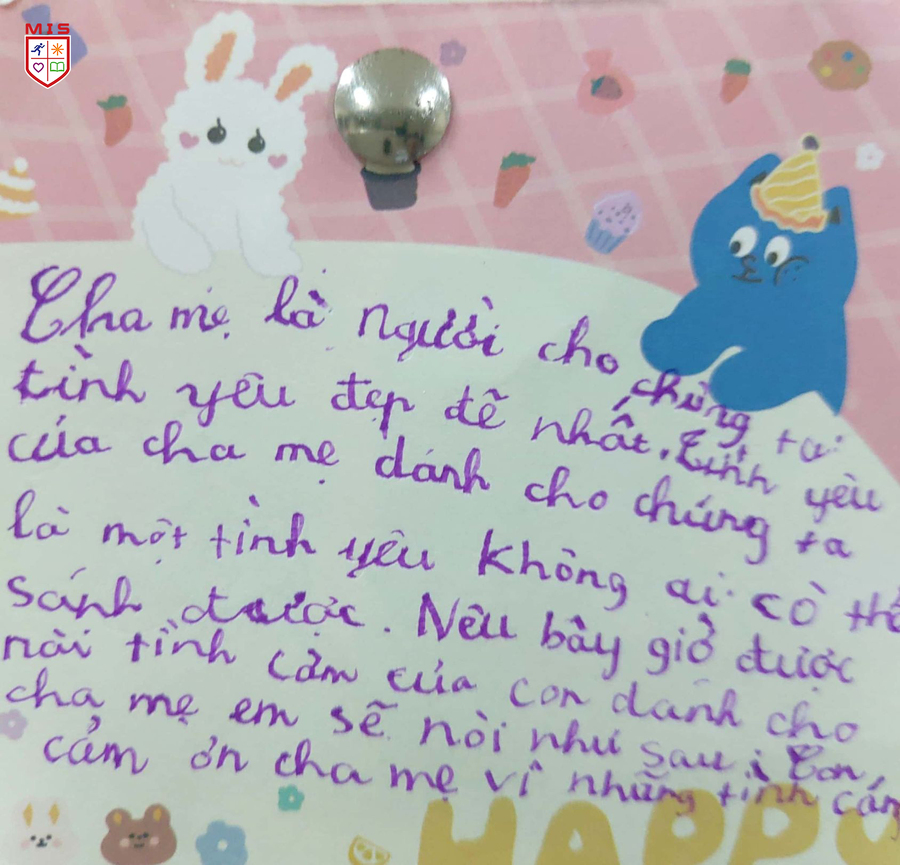 MIS
Cha mẹ là người cho chúng ta
tình yêu đẹp đẽ nhất. Tình yêu
của cha mẹ dành cho chúng ta
là một tình yêu không ai có thể
sánh được. Nếu bây giờ được
nói tình cảm của con dành cho
cha mẹ em sẽ nói như sau: Con
cảm ơn cha mẹ vì những tình cảm
HAPPY